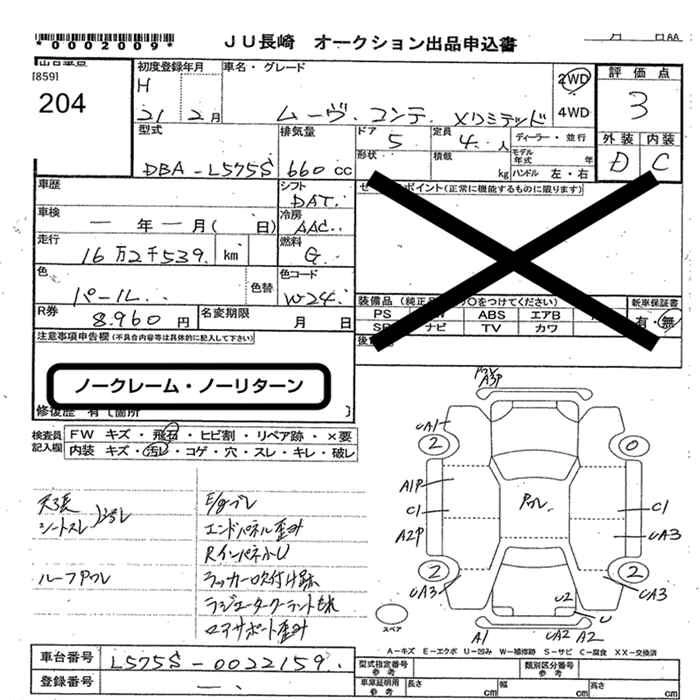 *0002009*
JU長崎 オークション出品申込書
月 日AA
[859]
204
初度登録年月
車名・グレード
2WD
4WD
評価点
H
21 2月
ムーヴ コンテ Xリミテッド
3
型式
排気量
ドア
5
定員
4 人
ディーラー・並行
外装 内装
DBA-L575S
660 cc
形状
積載
kg
モデル年式 年
ハンドル 左・右
D C
車歴
シフト
DAT
ポイント(正常に機能するものに限ります)
車検
一 年 一 月( 日)
冷房
AAC
走行
16万2千539 km
燃料
G
色
パール
色替
色コード
W24
装備品
つけてください)
新車保証書
有・無
PS
ABS エアB
ナビ TV カワ
R券
8.960 円
名変期限
月 日
注意事項申告欄(不具合内容等は具体的に記入して下さい)
ノークレーム・ノーリターン
修復歴 有[箇所 ]
検査員
記入欄
FW キズ・飛石・ヒビ割・リペア跡・×要
内装 キズ・汚レ・コゲ・穴・スレ・キレ・破レ
天張
シートスレ
ルーフ
E/gブレ
エンドパネル歪み
RインパネかU
ラッカー吹付け跡
ラジエータークーラントもれ
コアサポート歪み
A3P
UA1
2
0
A1P
C1
A2P
C1
UA3
2
2
UA3
UA3
U2
U
A1
UA2 A2
スペア
A-キズ E-エクボ U-凹み W-補修跡 S-サビ C-腐食 XX-交換済
車台番号
L575S-0022159
登録番号
型式指定番号
参考
類別区分番号
参考
車庫証明用
参考
長さ cm
幅 cm
高さ cm